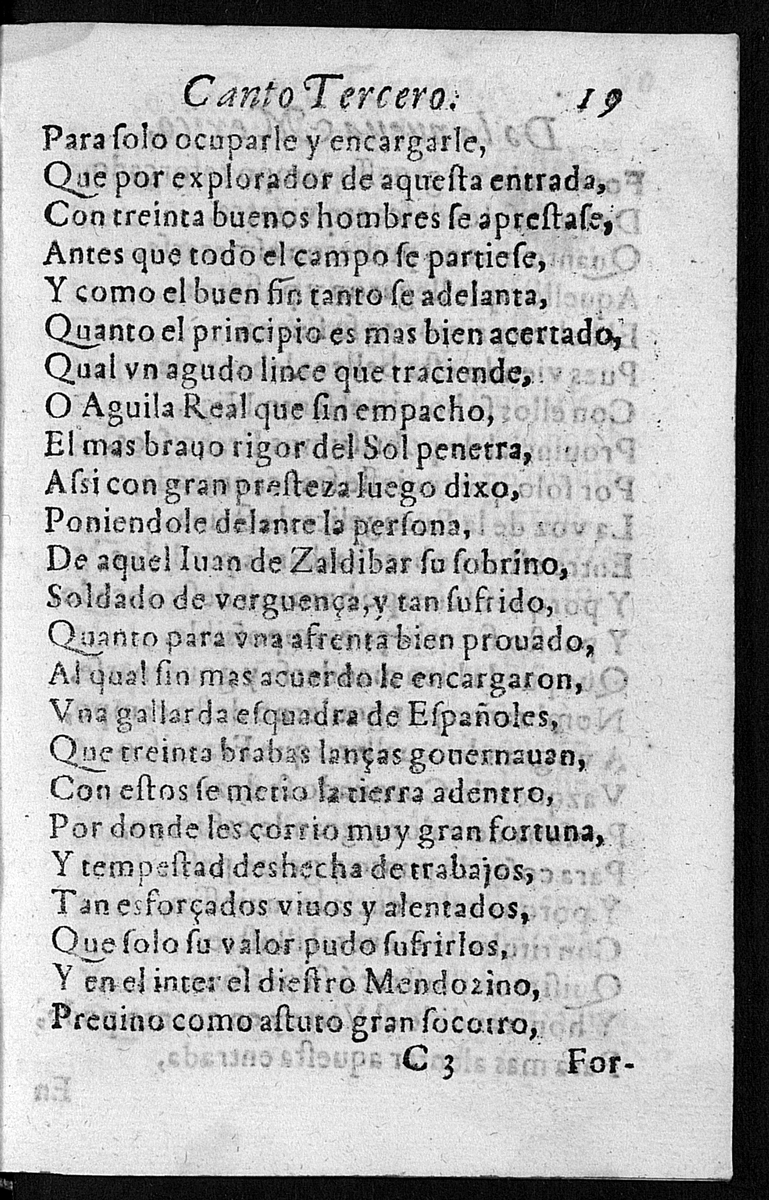 Canto Tercero. 19
Para ſolo ocuparle y encargarle,
Que por explorador de aqueſta entrada,
Con treinta buenos hombres se apreſtaſe,
Antes que todo el campo ſe partieſe,
Y como el buen fin tanto se adelanta,
Quanto el principio es mas bien acertado,
Qual vn agudo lince que traciende,
O Aguila Real que ſin empacho,
El mas brauo rigor del Sol penetra,
Aſsi con gran preſteza luego dixo,
Poniendole delante la perſona,
De aquel Iuan de Zaldibar ſu ſobrino,
Soldado de verguença, y tan ſufrido,
Quanto para vna afrenta bien prouado,
Al qual ſin mas acuerdo le encargaron,
Vna gallarda eſquadra de Eſpañoles,
Que treinta brabas lanças gouernauan,
Con eſtos ſe metio la tierra adentro,
Por donde les corrio muy gran fortuna,
Y tempeſtad deshecha de trabajos,
Tan esforçados viuos y alentados,
Que ſolo ſu valor pudo ſufrirlos,
Y en el inter el dieſtro Mendozino,
Preuino como aſtuto gran ſocorro,
C 3 For-